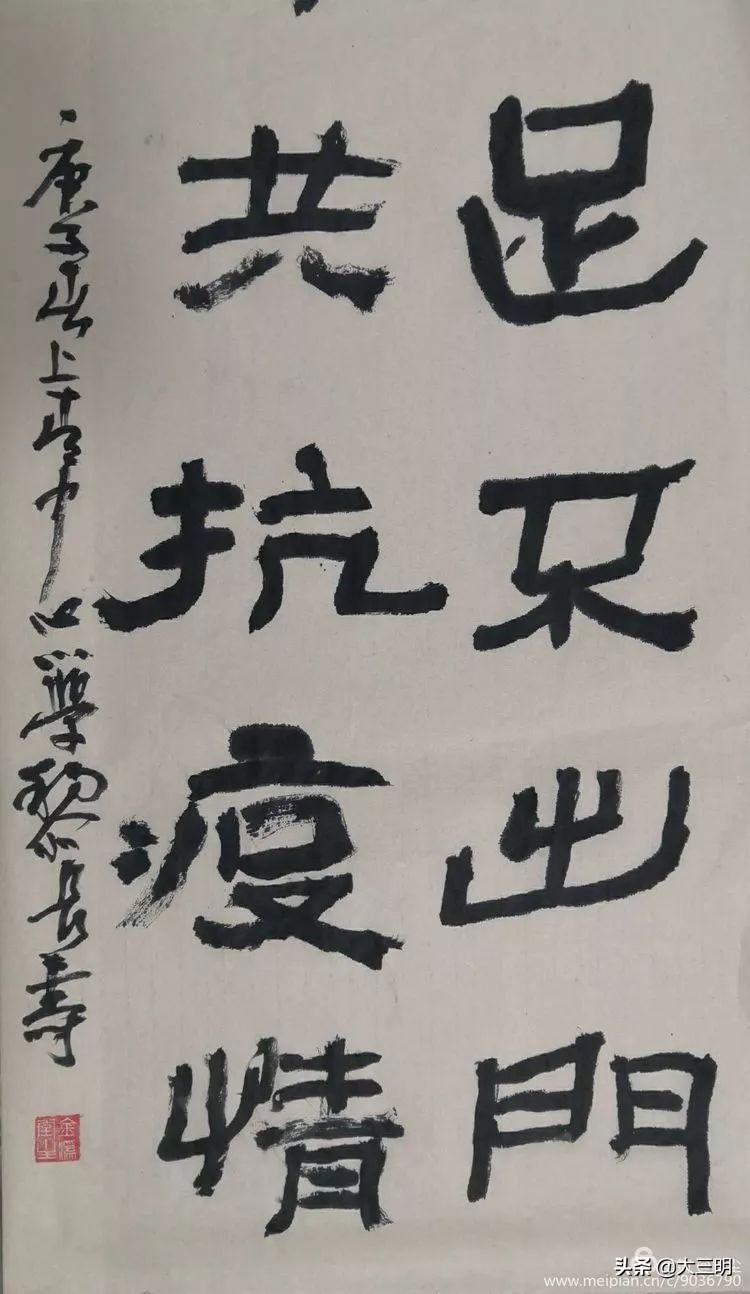 足不出門
共抗疫情
庚子春上青中心學黎長壽
头条 @大三明
www.meipian.cn/c/9036790